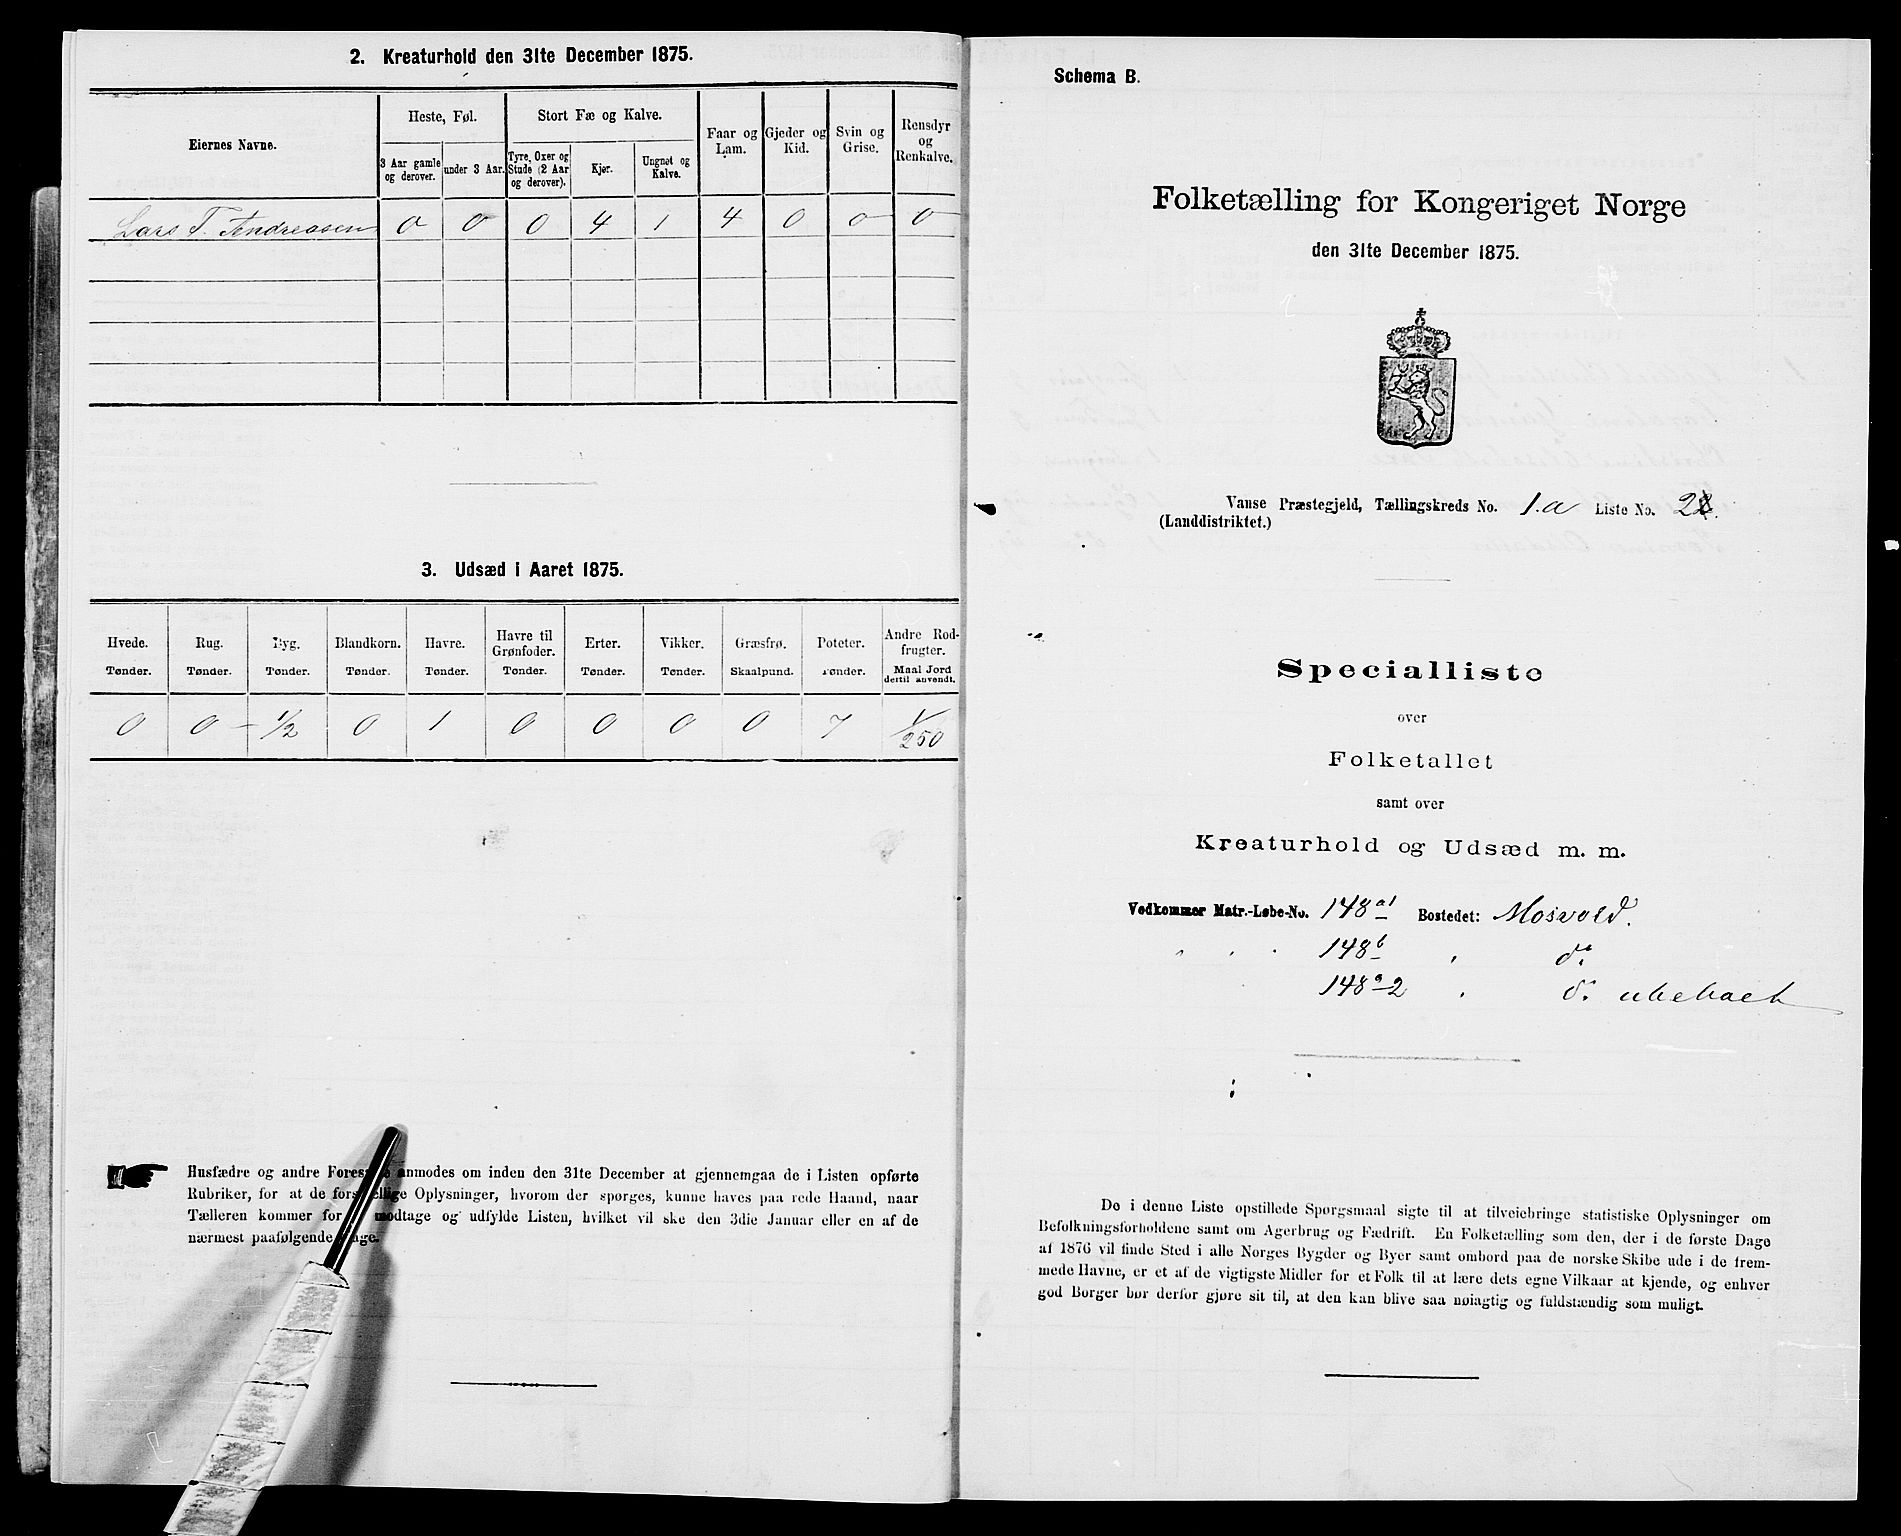 2. Kreaturhold den 31te December 1875.
Eiernes Navne.
Heste, Føl.
Stort Fæ og Kalve.
Faar og Lam.
Gjeder og Kid.
Svin og Grise.
Rensdyr og Renkalve.
3 Aar gamle og derover.
under 3 Aar.
Tyre, Oxer og Stude (2 Aar og derover).
Kjør.
Ungnøt og Kalve.
Lars T. Andreasen 0 0 0 4 1 4 0 0 0
3. Udsæd i Aaret 1875.
Hvede. Rug. Byg. Blandkorn. Havre. Havre til Grønfoder. Erter. Vikker. Græsfrø. Poteter. Andre Rodfrugter.
Tønder. Tønder. Tønder. Tønder. Tønder. Tønder. Tønder. Tønder. Skaalpund. Tønder. Maal Jord dertil anvendt.
0 0 - 1/2 0 1 0 0 0 0 7 1/250
Husfædre og andre anmodes om inden den 31te December at gjennemgaa de i Listen opførte
Rubriker, for at de Oplysninger, hvorom der spørges, kunne haves paa rede Haand, naar
Tælleren kommer for modtage og udfylde Listen, hvilket vil ske den 3die Januar eller en af de
nærmest paafølgende
Schema B.
Folketælling for Kongeriget Norge
den 31te December 1875.
Vanse Præstegjeld, Tællingskreds No. 1.a Liste No.
(Landdistriktet.)
Specialliste
over
Folketallet
samt over
Kreaturhold og Udsæd m. m.
Vedkommer Matr.-Løbe-No. 148 a1 Bostedet: Mosvold.
" " " 148 b " do.
148 a2 " do. ubeboet
De i denne Liste opstillede Spørgsmaal sigte til at tilveiebringe statistiske Oplysninger om
Befolkningsforholdene samt om Agerbrug og Fædrift. En Folketælling som den, der i de første Dage
af 1876 vil finde Sted i alle Norges Bygder og Byer samt ombord paa de norske Skibe ude i de frem-
mede Havne, er et af de vigtigste Midler for et Folk til at lære dets egne Vilkaar at kjende, og enhver
god Borger bør derfor gjøre sit til, at den kan blive saa nøiagtig og fuldstændig som muligt.